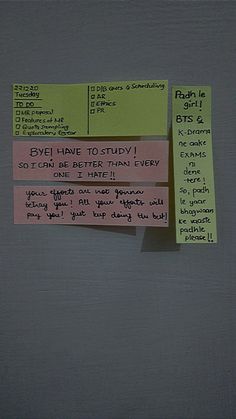 22.12.20
Tuesday
TO DO
□ MR proposal
□ Features of MR
□ Quota Sampling
□ Explanatory
□ D/B Ques & Scheduling
□ AR
□ Ethics
□ PR
BYE! HAVE TO STUDY!
SO I CAN BE BETTER THAN EVERY
ONE I HATE!!
your efforts are not gonna
betray you! All your efforts will
pay you! just keep doing the best!
Padh le
girl!
BTS &
K-Drama
ne aake
EXAMS
ni
dene
tere!
So, padh
le yaar
bhagwaan
ke vaaste
padhle
please!!